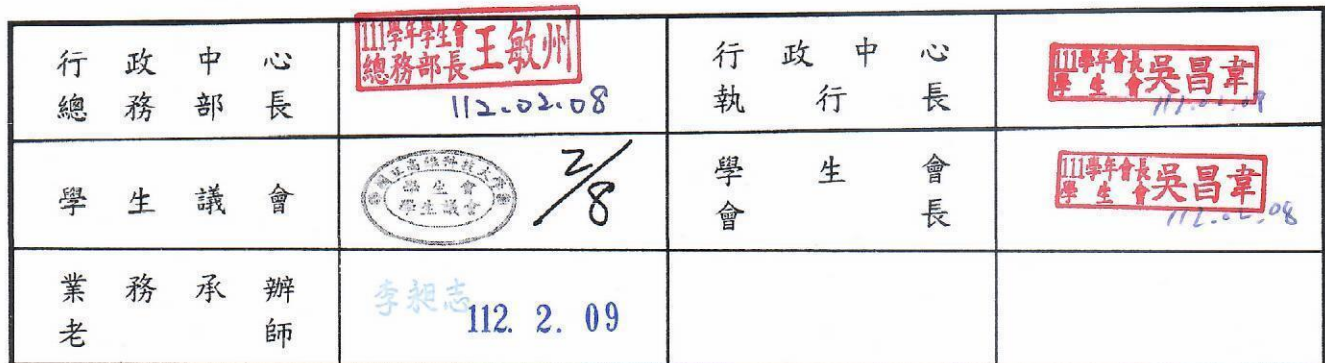 行政中心
總務部長
111學年學生會
總務部長 王敏州
112.02.08
行政中心
執行長
111學年會長
學生會 吳昌韋
學生議會
學生會
學生議會
2/8
學生會
會長
111學年會長
學生會 吳昌韋
112.02.08
業務承辦
老師
李昶志
112. 2. 09